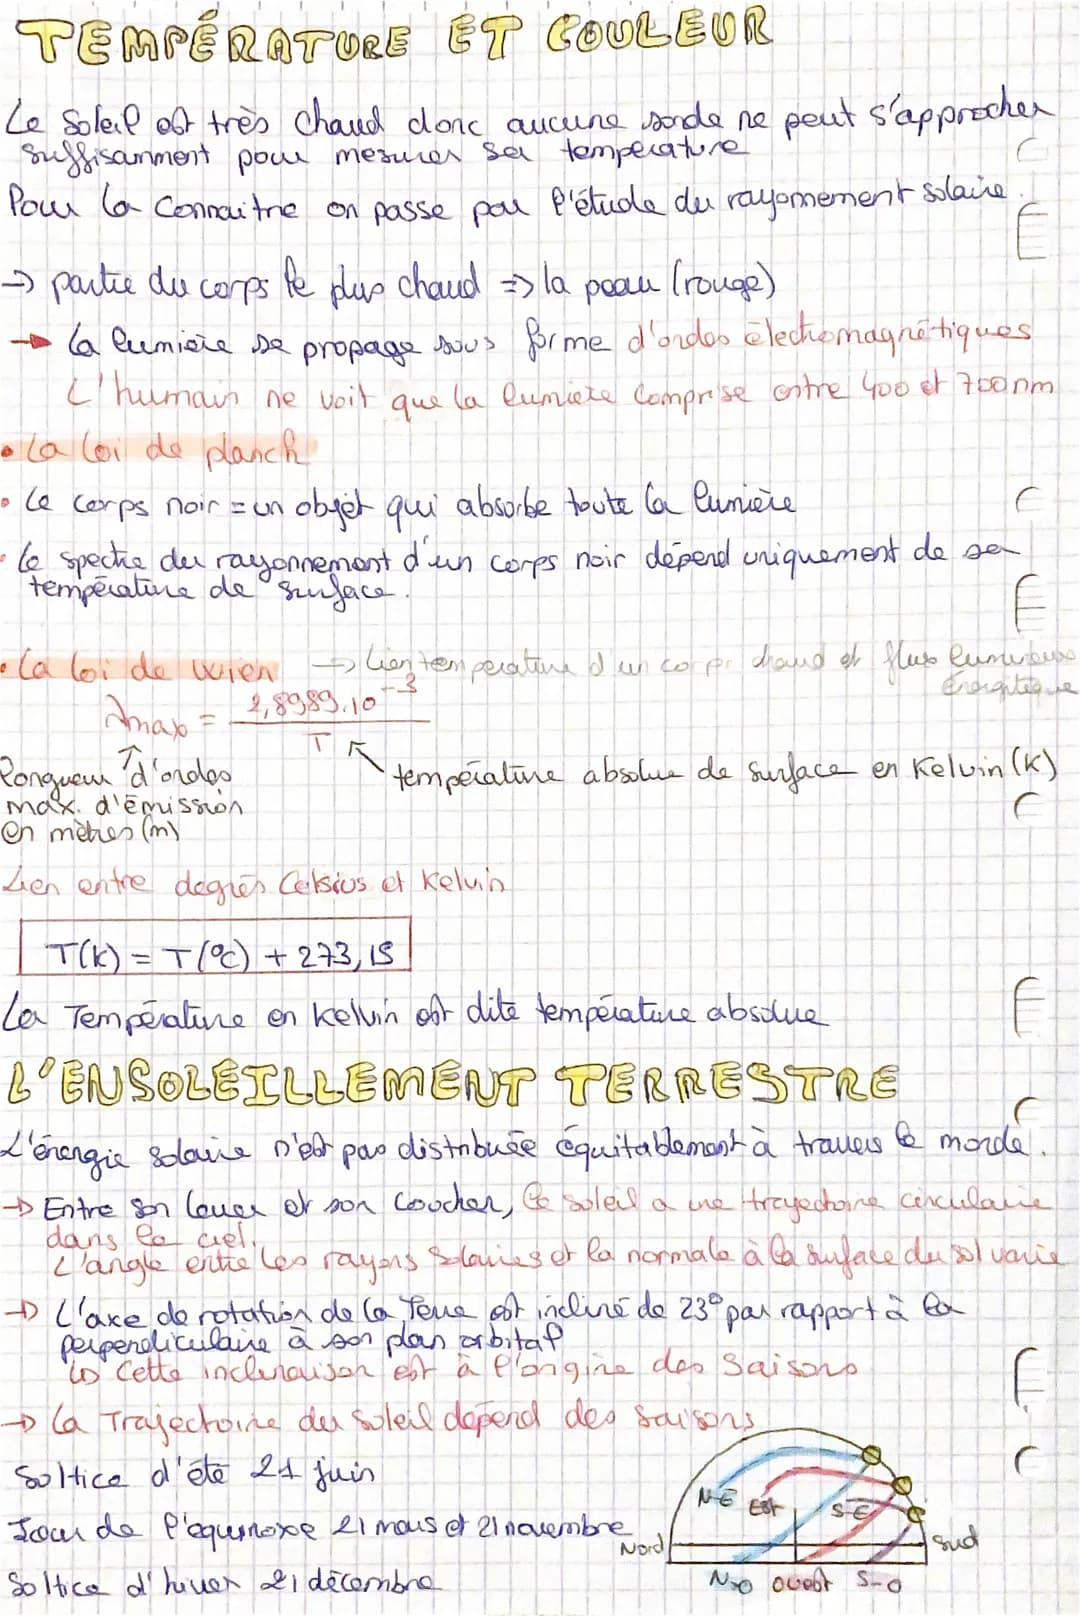 TEMPÉRATURE ET COULEUR
Le Soleil est très chaud donc aucune sonde ne peut s'approcher
suffisamment pour mesurer sa température
Pour la connaitre on passe par l'étude du rayonnement solaire.
→ partie du corps le plus chaud => la peau (rouge)
→ la lumière se propage sous forme d'ondes électromagnétiques
L'humain ne voit que la lumière comprise entre 400 et 700nm
• La loi de planch
• Le corps noir = un objet qui absorbe toute la lumière
• Le spectre du rayonnement d'un corps noir dépend uniquement de sa
température de surface.
• La loi de wien → Lien température d'un corps chaud et flux lumineux
énergétique
λmax = 2,8989.10⁻³ / T
longueur d'ondes
max. d'émission
en mètres (m)
température absolue de surface en Kelvin (K)
Lien entre degrés Celsius et Kelvin
T(K) = T(°C) + 273,15
La Température en kelvin est dite température absolue
L'ENSOLEILLEMENT TERRESTRE
L'énergie solaire n'est pas distribuée équitablement à travers le monde.
→ Entre son lever et son coucher, le soleil a une trajectoire circulaire
dans le ciel.
L'angle entre les rayons solaires et la normale à la surface du sol varie
→ L'axe de rotation de la Terre est incliné de 23° par rapport à la
perpendiculaire à son plan orbital
↳ Cette inclinaison est à l'origine des saisons
→ La Trajectoire du soleil dépend des saisons
Soltice d'été 21 juin
Jour de l'équinoxe 21 mars et 21 novembre
Soltice d'hiver 21 décembre
N-E Est S-E
Nord Sud
N-O Ouest S-O